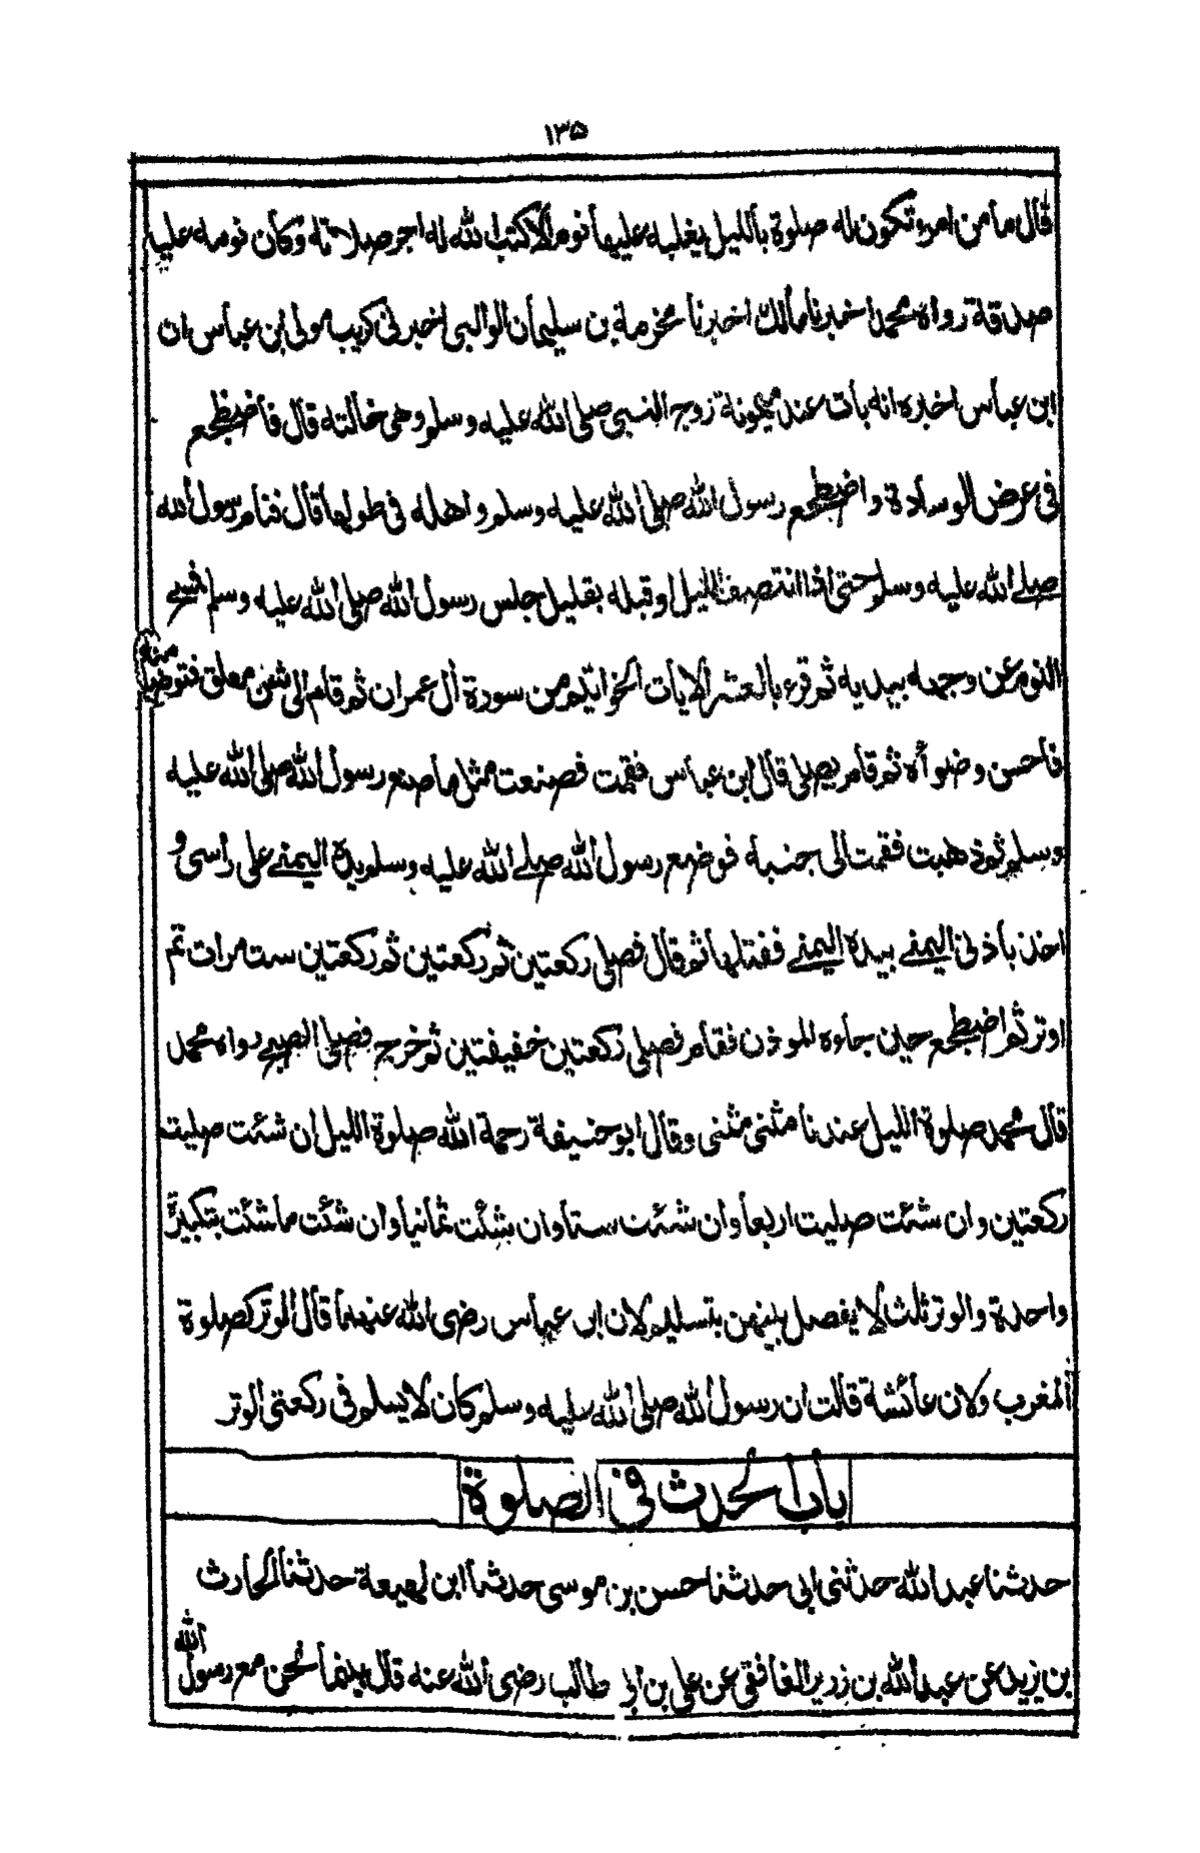 ١٣٥
قال ما من امرء تكون له صلوة بالليل يغلبه عليها نوم الا كتب الله له اجر صلاته وكان نومه عليه
صدقة رواه محمد اخبرنا مالك اخبرنا مخرمة بن سليمان الوالبى اخبرنى كريب مولى ابن عباس ان
ابن عباس اخبره انه بات عند ميمونة زوج النبى صلى الله عليه وسلم وهى خالته قال فاضطجع
فى عرض الوسادة واضطجع رسول الله صلى الله عليه وسلم واهله فى طولها قال فنام رسول الله
صلے الله عليه وسلم حتى اذا انتصف الليل او قبله بقليل جلس رسول الله صلى الله عليه وسلم فمسح
النوم عن وجهه بيديه ثم قرء بالعشر الايات الخواتيم من سورة ال عمران ثم قام الى شن معلق فتوضأ منه
فاحسن وضوأه ثم قام يصلى قال ابن عباس فقمت فصنعت مثل ما صنع رسول الله صلى الله عليه
وسلم ثم ذهبت فقمت الى جنبه فوضع رسول الله صلے الله عليه وسلم يده اليمنے على راسى و
اخذ باذنى اليمنے بيده اليمنے ففتلها ثم قال فصلى ركعتين ثم ركعتين ثم ركعتين ست مرات ثم
اوتر ثم اضطجع حين جاءه الموذن فقام فصلى ركعتين خفيفتين ثم خرج فصلى الصبح رواه محمد
قال محمد صلوة الليل عندنا مثنى مثنى وقال ابو حنيفة رحمة الله صلوة الليل ان شئت صليت
ركعتين وان شئت صليت اربعا وان شئت ستا وان شئت ثمانيا وان شئت ما شئت بتكبيرة
واحدة والوتر ثلث لا يفصل بينهن بتسليم لان ابن عباس رضى الله عنهما قال الوتر كصلوة
المغرب ولان عائشة قالت ان رسول الله صلى الله عليه وسلم كان لا يسلم فى ركعتى الوتر
باب الحدث فى الصلوة
حدثنا عبد الله حدثنى ابى حدثنا حسن بن موسى حدثنا ابن لهيعة حدثنا الحارث
بن يزيد عن عبد الله بن زرير الغافقى عن على بن ابى طالب رضى الله عنه قال بينما نحن مع رسول الله